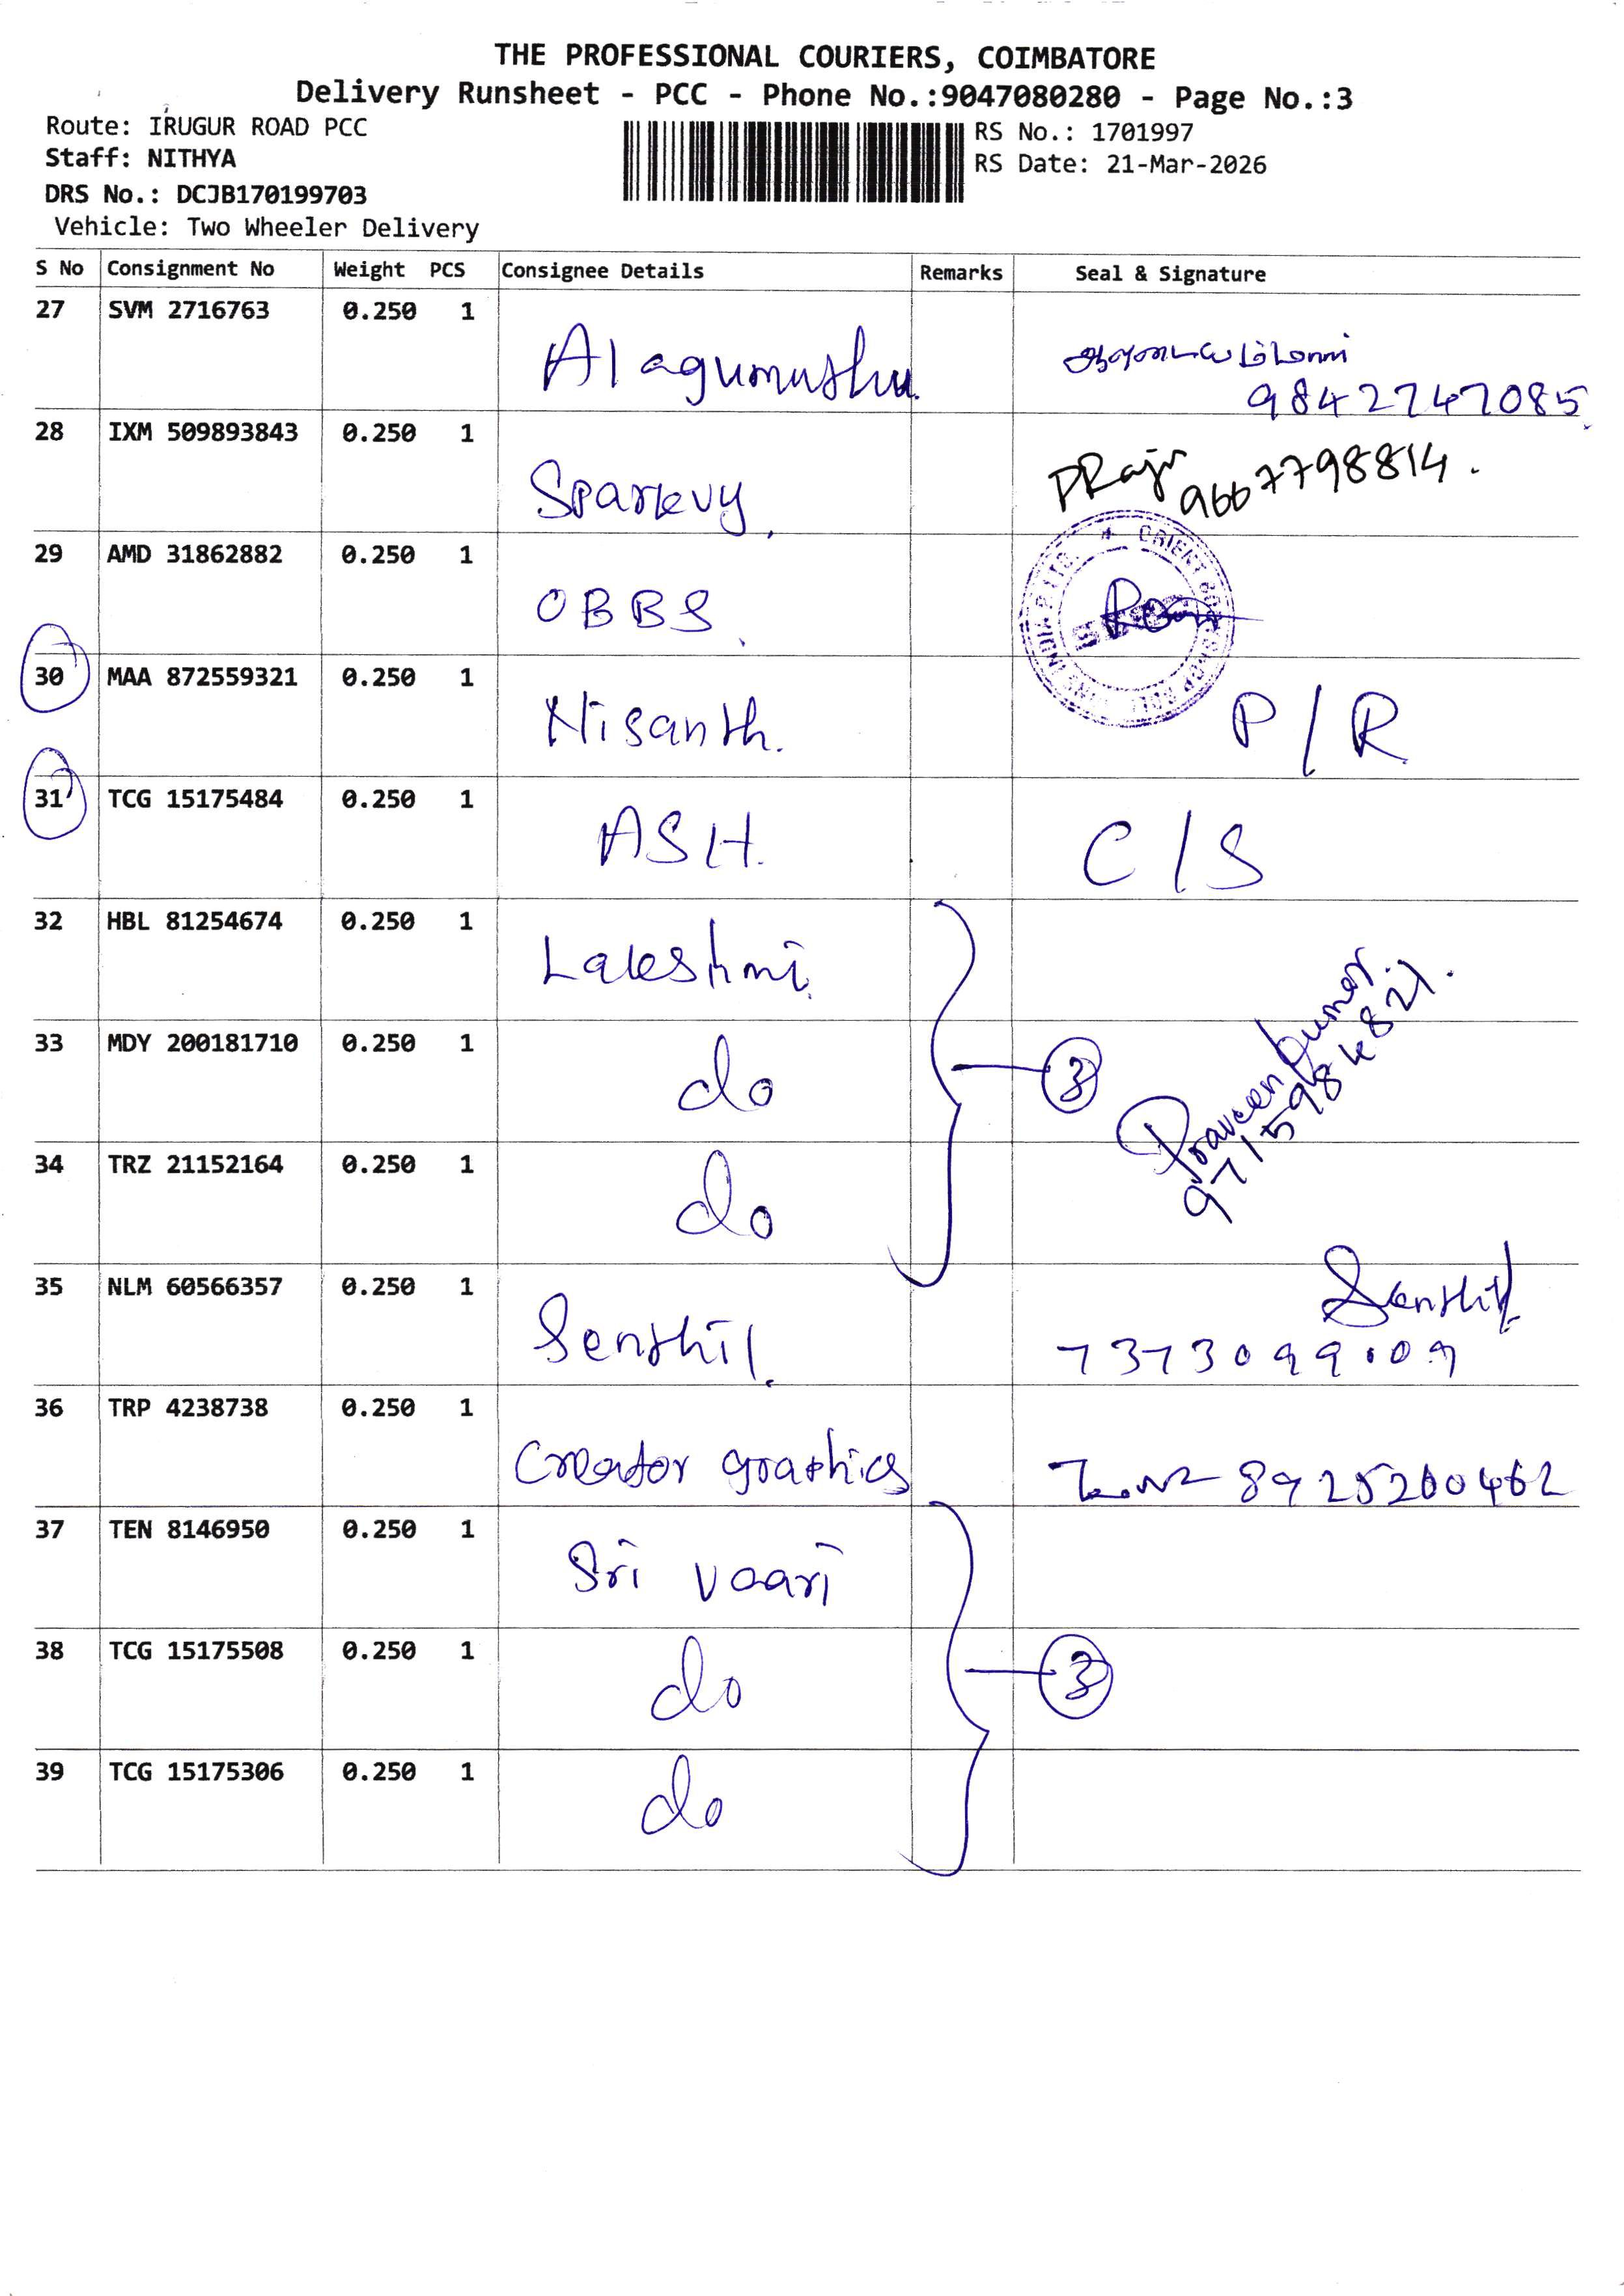 THE PROFESSIONAL COURIERS, COIMBATORE
Delivery Runsheet - PCC - Phone No.:9047080280 - Page No.:3
Route: IRUGUR ROAD PCC
Staff: NITHYA
DRS No.: DCJB170199703
Vehicle: Two Wheeler Delivery
RS No.: 1701997
RS Date: 21-Mar-2026
S No Consignment No Weight PCS Consignee Details Remarks Seal & Signature
27 SVM 2716763 0.250 1 Alagumuthu.
98427 47085
28 IXM 509893843 0.250 1 Sparkvy. PRaju
9667798814.
29 AMD 31862882 0.250 1 OBBS.
30 MAA 872559321 0.250 1 Nisanth. P/R
31 TCG 15175484 0.250 1 ASH. C/S
32 HBL 81254674 0.250 1 Lakshmi.
33 MDY 200181710 0.250 1 do 3 Praveen kumar
34 TRZ 21152164 0.250 1 do
35 NLM 60566357 0.250 1 Senthil. Senthil
7373099109
36 TRP 4238738 0.250 1 Creator graphics 8925200462
37 TEN 8146950 0.250 1 Sri Vaari
38 TCG 15175508 0.250 1 do 3
39 TCG 15175306 0.250 1 do